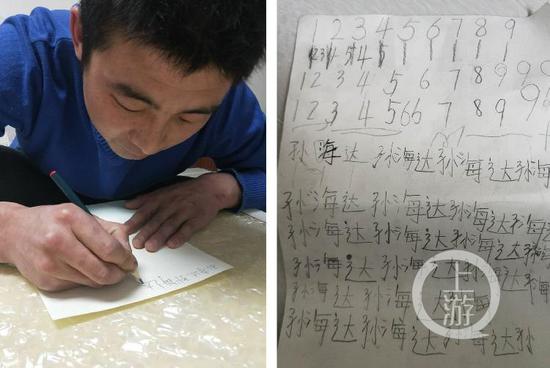 1 2 3 4 5 6 7 8 9
1 2 3 4 5 6 7 8 9 9 9
1 2 3 4 5 6 6 7 8 9 9
孙 海 达 孙海达 孙海达孙海
孙海达孙海达孙海达孙海
孙海达孙海达孙海达孙海
孙海达孙海达孙海达孙海
孙海达孙海达孙海
孙海达孙海达孙海达孙
上游